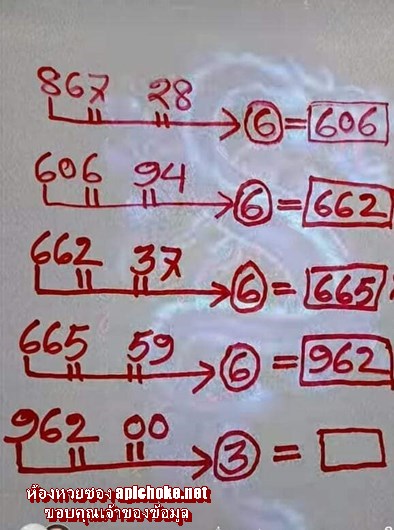 867 28 → 6 = 606
606 94 → 6 = 662
662 37 → 6 = 665
665 59 → 6 = 962
962 00 → 3 =
ห้องหวยซอง apichoke.net
ขอบคุณเจ้าของข้อมูล